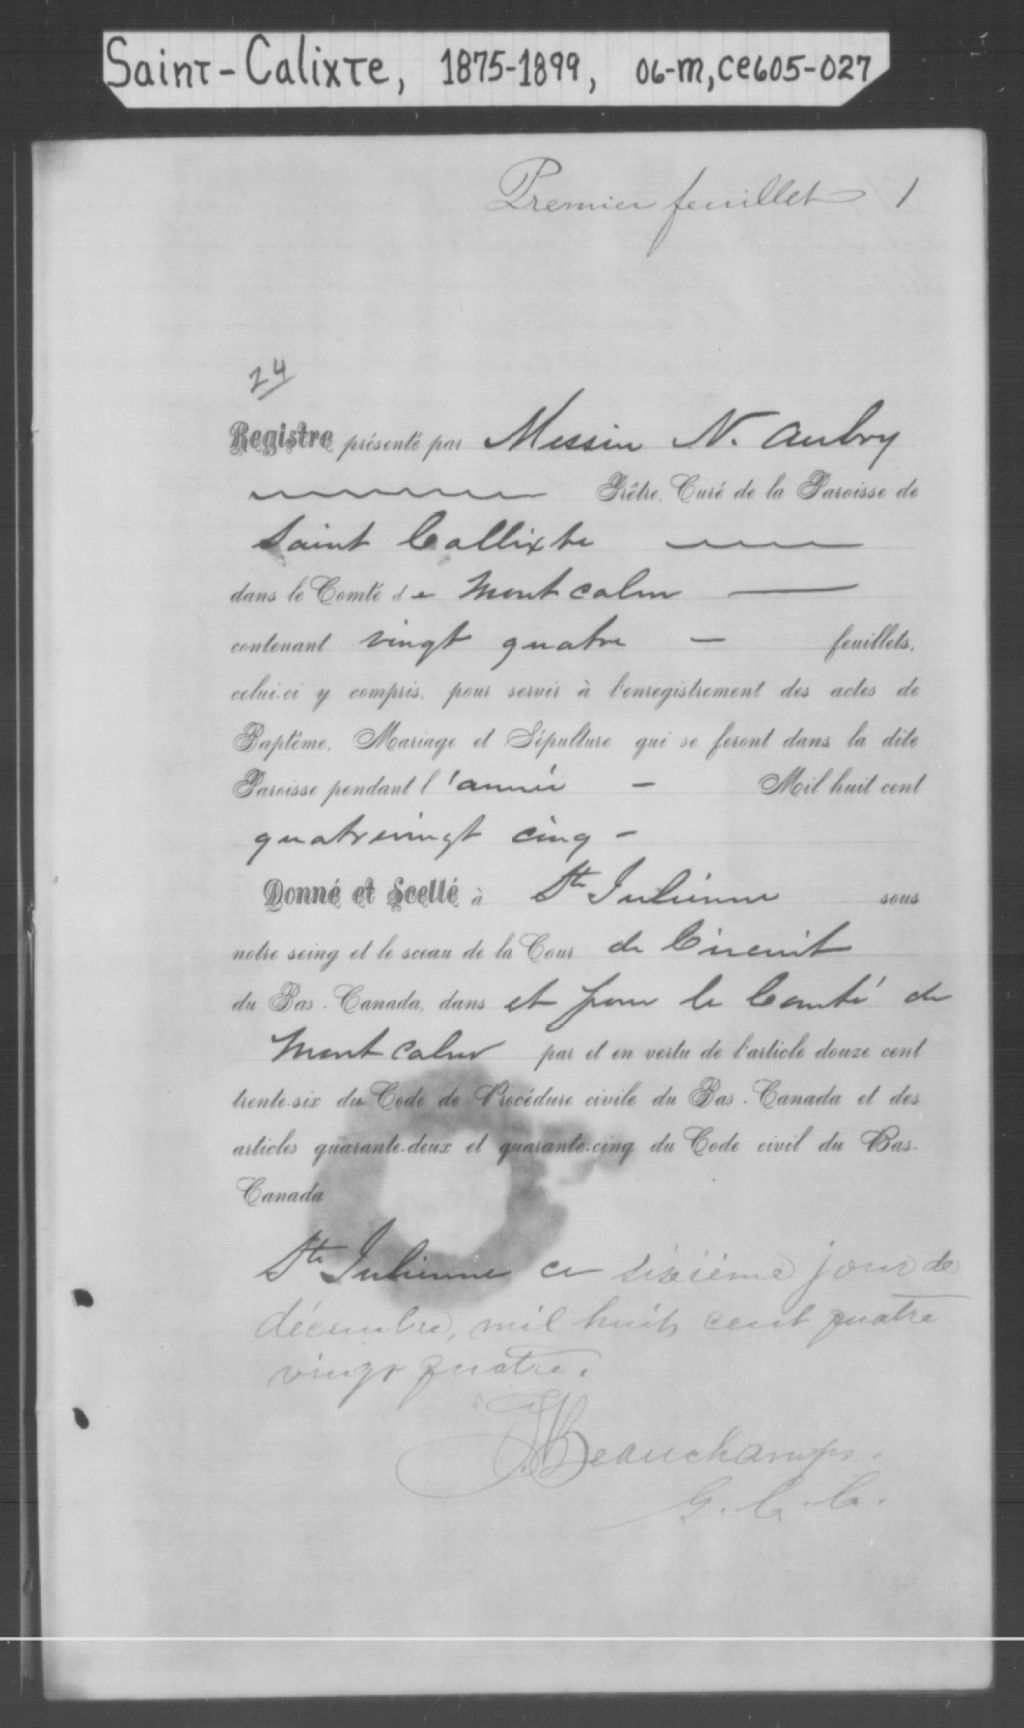 Saint-Calixte, 1875-1899, 06-M, CE605-027
Premier feuillet 1
24
Registre présenté par Messire N. Aubry
Prêtre, Curé de la Paroisse de
Saint Callixte
dans le Comté de Montcalm
contenant vingt quatre – feuillets,
celui-ci y compris, pour servir à l'enregistrement des actes de
Baptême, Mariage et Sépulture qui se feront dans la dite
Paroisse pendant l'année – Mil huit cent
quatrevingt cinq –
Donné et Scellé à Ste Julienne sous
notre seing et le sceau de la Cour de Circuit
du Bas-Canada, dans et pour le Comté de
Montcalm par et en vertu de l'article douze cent
trente-six du Code de Procédure civile du Bas-Canada et des
articles quarante-deux et quarante-cinq du Code civil du Bas-
Canada
Ste Julienne ce sixième jour de
décembre, mil huit cent quatre
vingt quatre.
Beauchamp.
G. C. C.